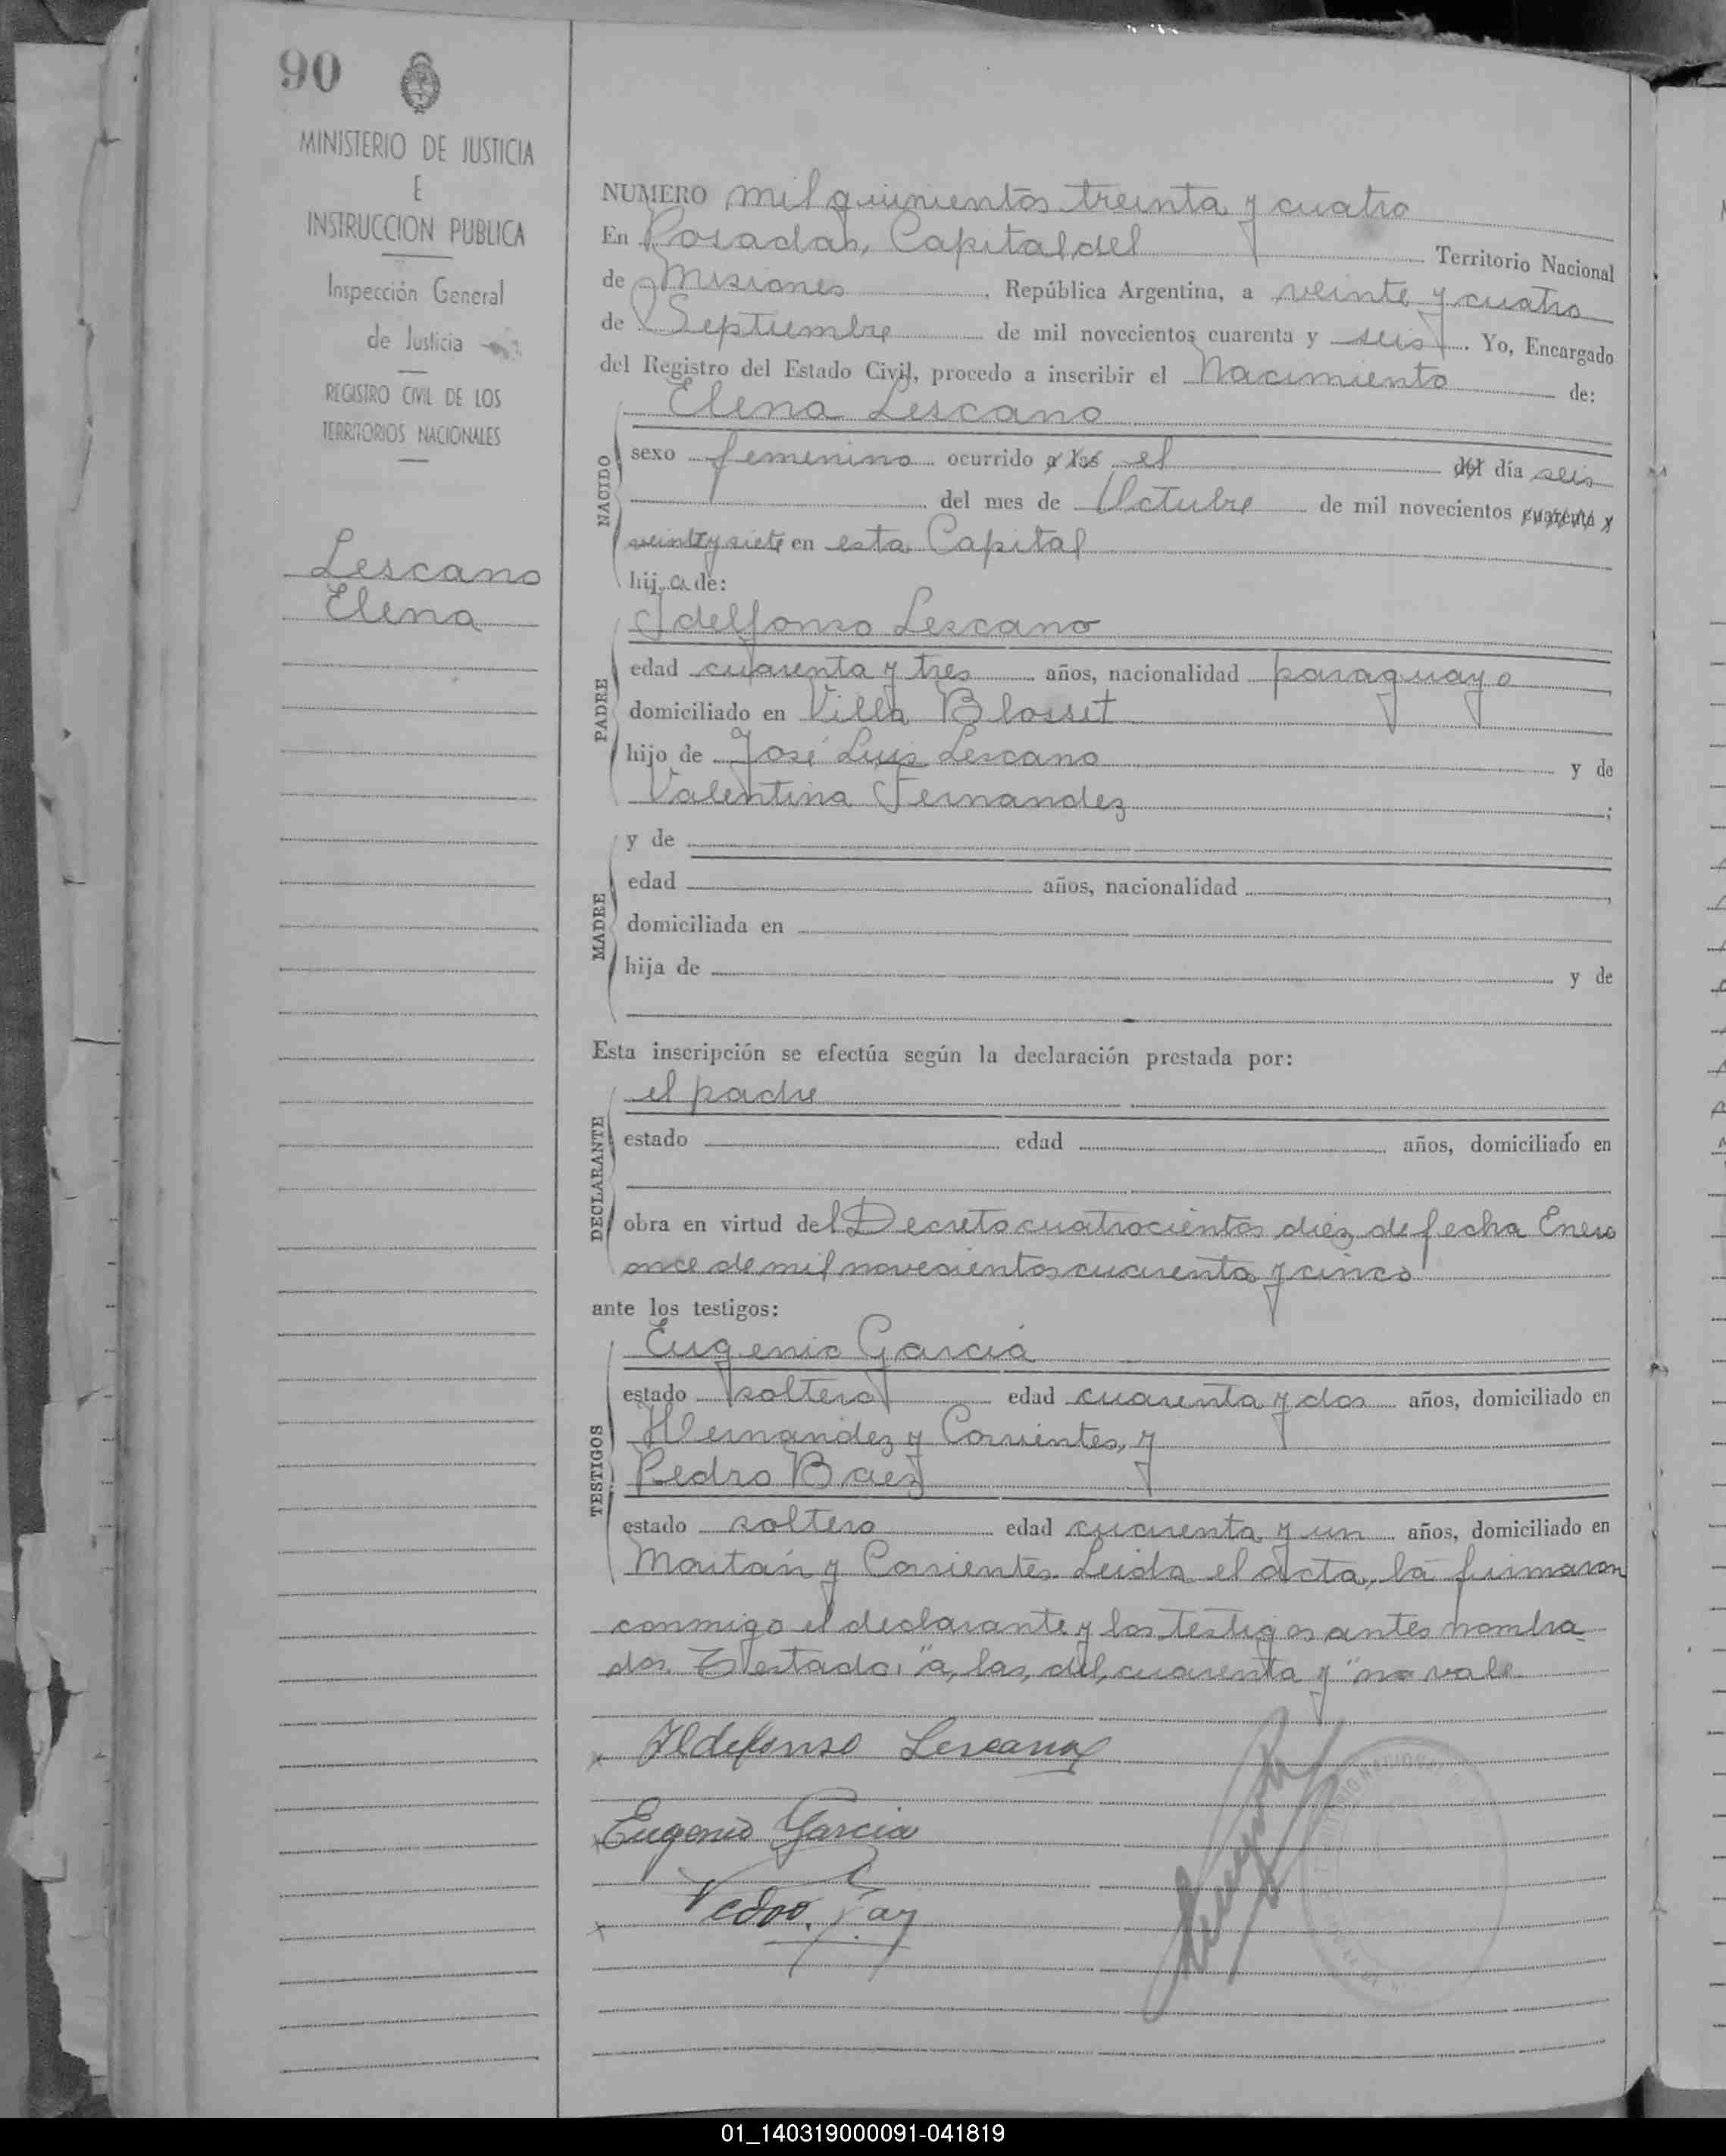 90
MINISTERIO DE JUSTICIA
E
INSTRUCCION PUBLICA
Inspección General
de Justicia
REGISTRO CIVIL DE LOS
TERRITORIOS NACIONALES
Lescano
Elena
NUMERO mil quinientos treinta y cuatro
En Posadas, Capital del Territorio Nacional
de Misiones, República Argentina, a veinte y cuatro
de Septiembre de mil novecientos cuarenta y seis. Yo, Encargado
del Registro del Estado Civil, procedo a inscribir el Nacimiento de:
NACIDO
Elena Lescano
sexo femenino ocurrido a las el del día seis
del mes de Octubre de mil novecientos cuarenta y
veinte y siete en esta Capital
hij a de:
PADRE
Idelfonso Lescano
edad cuarenta y tres años, nacionalidad paraguayo,
domiciliado en Villa Blosset
hijo de José Luis Lescano y de
Valentina Fernandez;
MADRE
y de
edad años, nacionalidad,
domiciliada en
hija de y de
Esta inscripción se efectúa según la declaración prestada por:
DECLARANTE
el padre
estado edad años, domiciliado en
obra en virtud del Decreto cuatrocientos diez de fecha Enero
once de mil novecientos cuarenta y cinco
ante los testigos:
TESTIGOS
Eugenio García
estado soltero edad cuarenta y dos años, domiciliado en
Hernandez y Corrientes, y
Pedro Baez
estado soltero edad cuarenta y un años, domiciliado en
y Corrientes. Leida el acta, la firmaron
conmigo el declarante y los testigos antes nombra
dos. Testado: "a, las, del, cuarenta y" no vale
x Ildefonso Lescano
x Eugenio Garcia
x Pedro
01_140319000091-041819